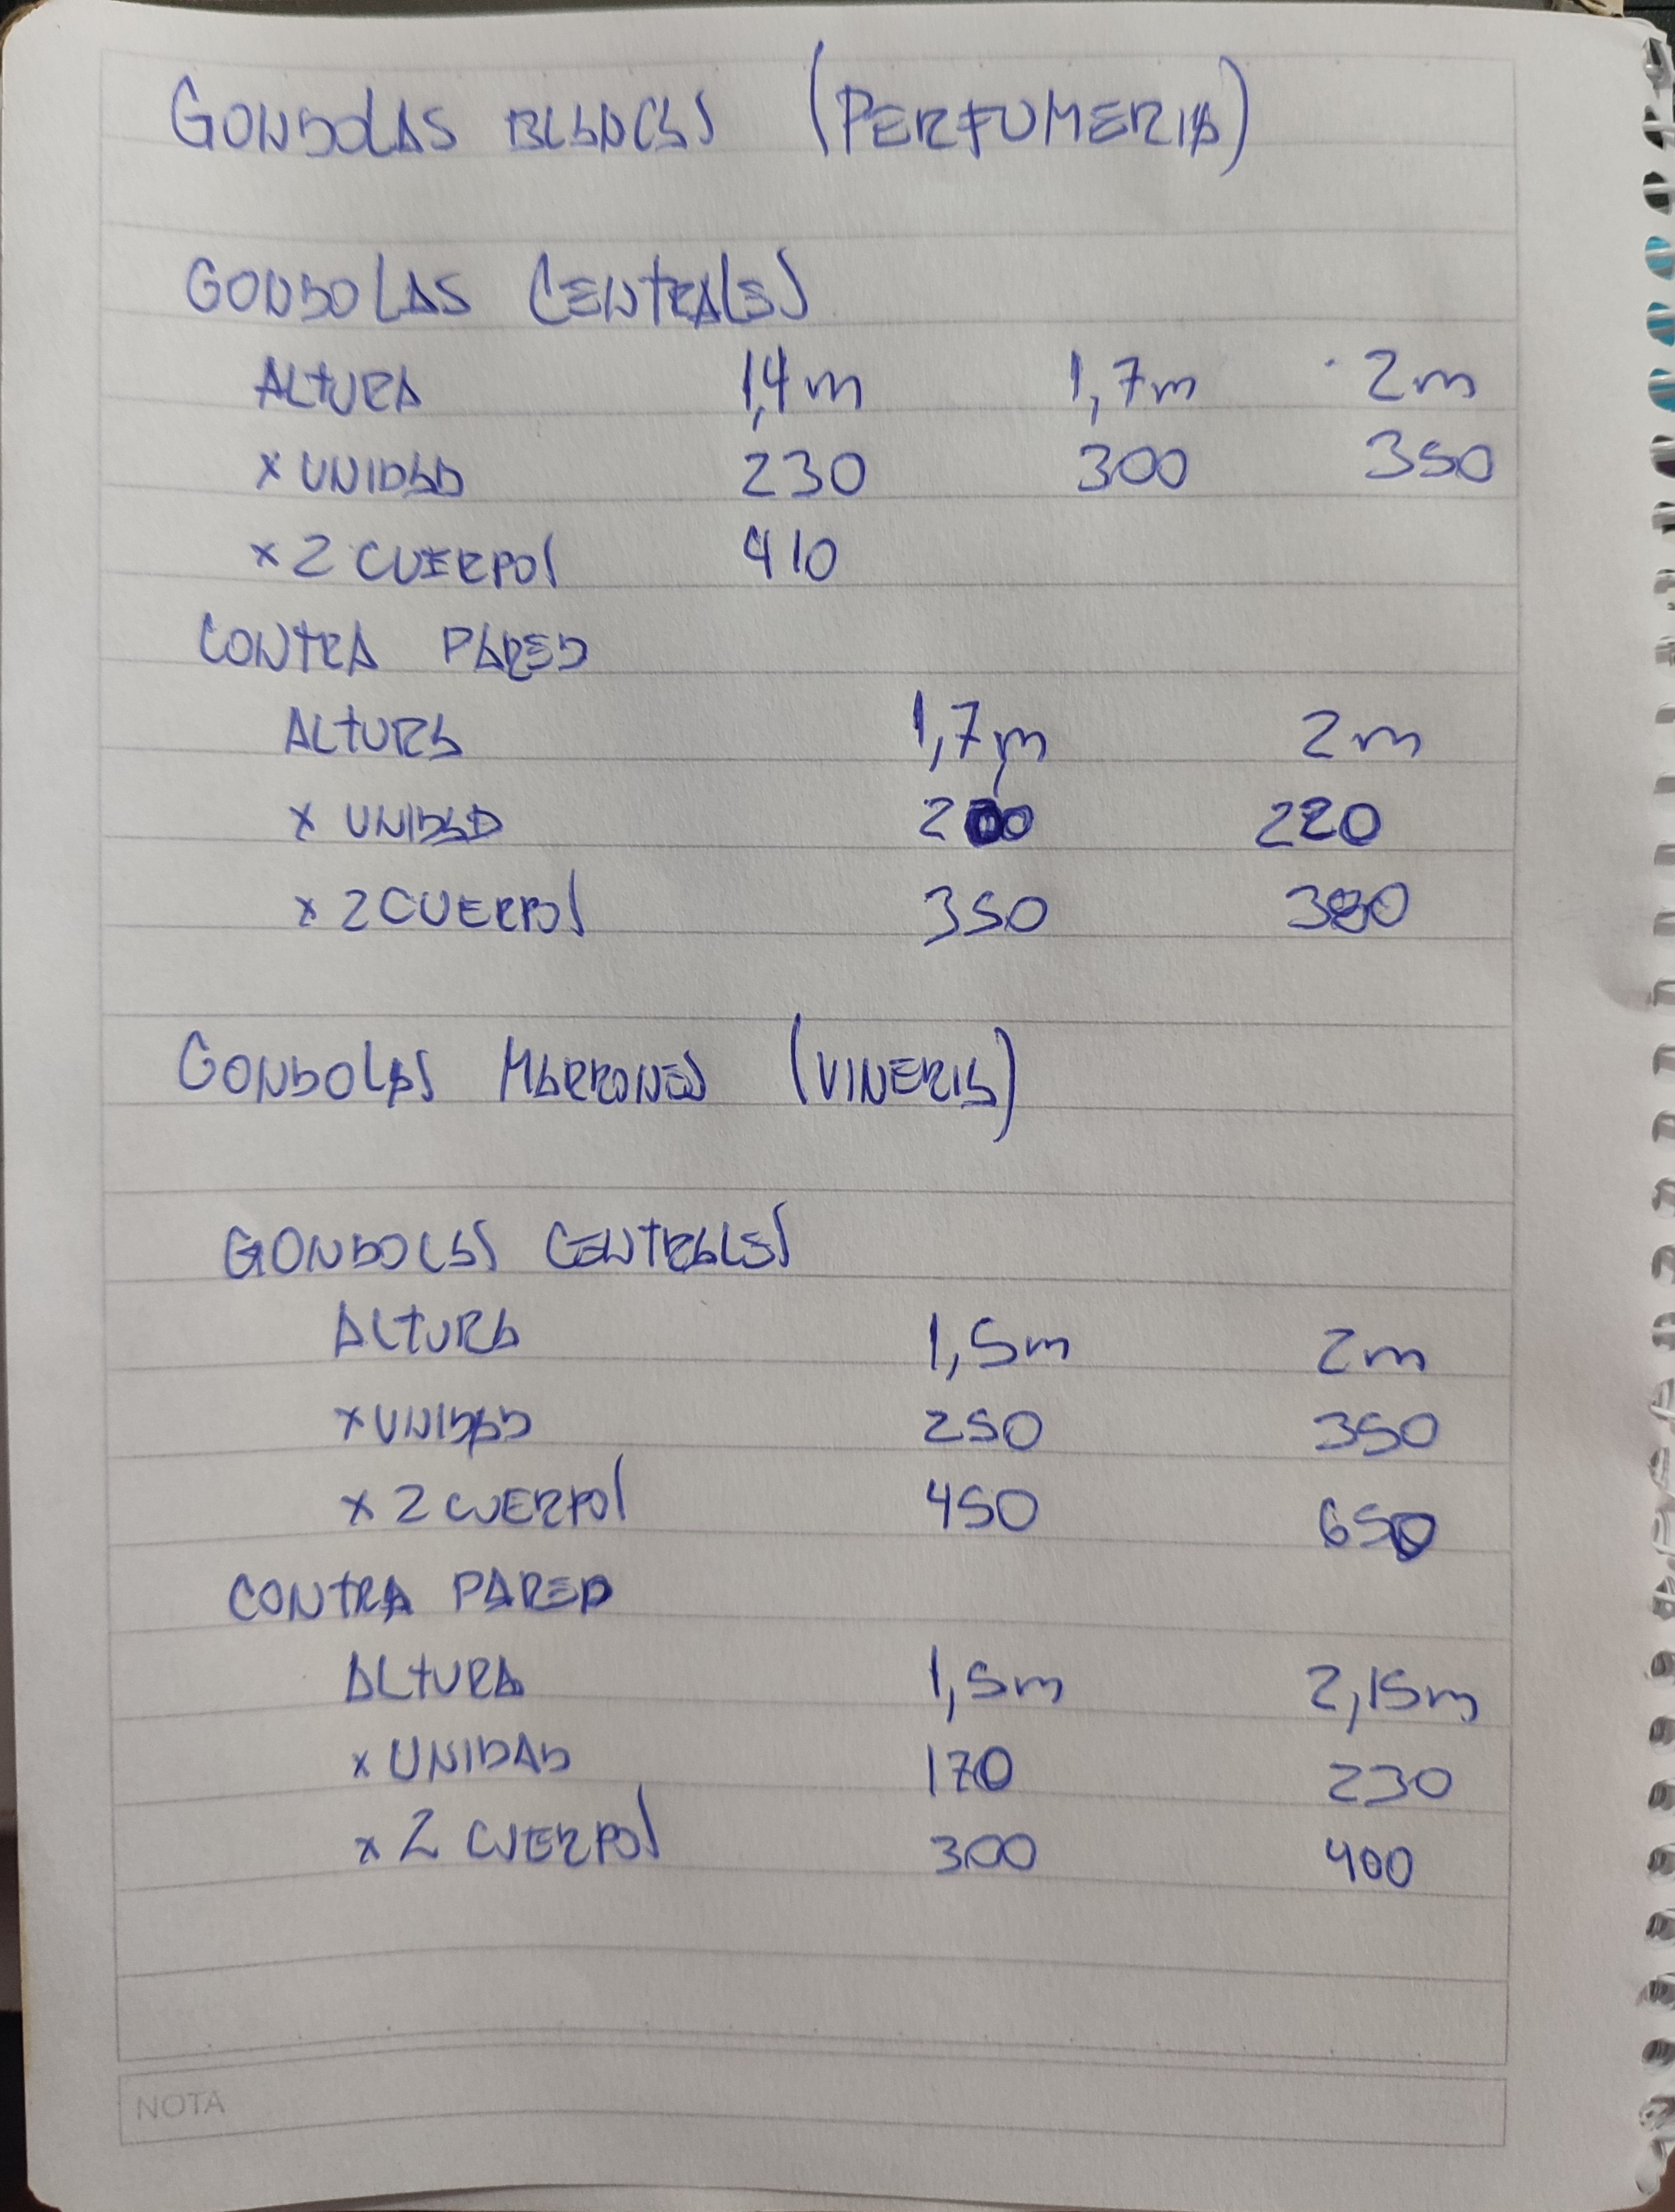 GONDOLAS BLANCAS (PERFUMERIA)
GONDOLAS CENTRALES
ALTURA 1,4m 1,7m 2m
x UNIDAD 230 300 350
x 2 CUERPOS 410
CONTRA PARED
ALTURA 1,7m 2m
x UNIDAD 200 220
x 2 CUERPOS 350 380
GONDOLAS MARRONES (VINERIA)
GONDOLAS CENTRALES
ALTURA 1,5m 2m
x UNIDAD 250 350
x 2 CUERPOS 450 650
CONTRA PARED
ALTURA 1,5m 2,15m
x UNIDAD 170 230
x 2 CUERPOS 300 400
NOTA